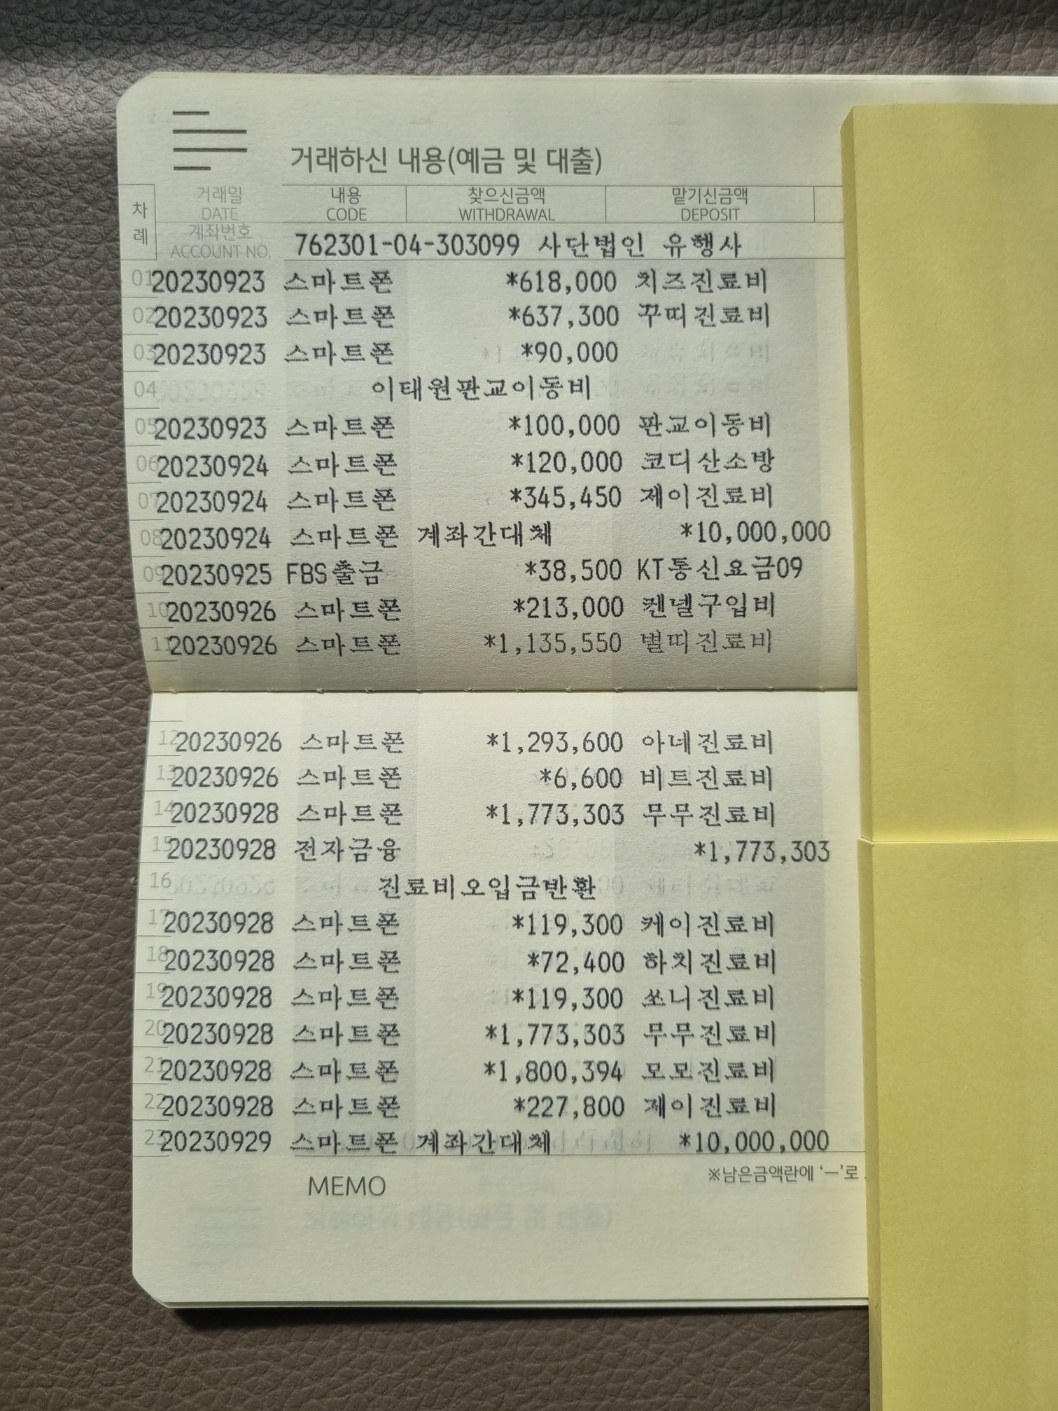 거래하신 내용(예금 및 대출)
차례 거래일 DATE 내용 CODE 찾으신금액 WITHDRAWAL 맡기신금액 DEPOSIT
계좌번호 ACCOUNT NO. 762301-04-303099 사단법인 유행사
01 20230923 스마트폰 *618,000 치즈진료비
02 20230923 스마트폰 *637,300 꾸띠진료비
03 20230923 스마트폰 *90,000
04 이태원판교이동비
05 20230923 스마트폰 *100,000 판교이동비
06 20230924 스마트폰 *120,000 코디산소방
07 20230924 스마트폰 *345,450 제이진료비
08 20230924 스마트폰 계좌간대체 *10,000,000
09 20230925 FBS출금 *38,500 KT통신요금09
10 20230926 스마트폰 *213,000 켄넬구입비
11 20230926 스마트폰 *1,135,550 별띠진료비
12 20230926 스마트폰 *1,293,600 아네진료비
13 20230926 스마트폰 *6,600 비트진료비
14 20230928 스마트폰 *1,773,303 무무진료비
15 20230928 전자금융 *1,773,303
16 진료비오입금반환
17 20230928 스마트폰 *119,300 케이진료비
18 20230928 스마트폰 *72,400 하치진료비
19 20230928 스마트폰 *119,300 쏘니진료비
20 20230928 스마트폰 *1,773,303 무무진료비
21 20230928 스마트폰 *1,800,394 모모진료비
22 20230928 스마트폰 *227,800 제이진료비
23 20230929 스마트폰 계좌간대체 *10,000,000
※남은금액란에 '—'로
MEMO